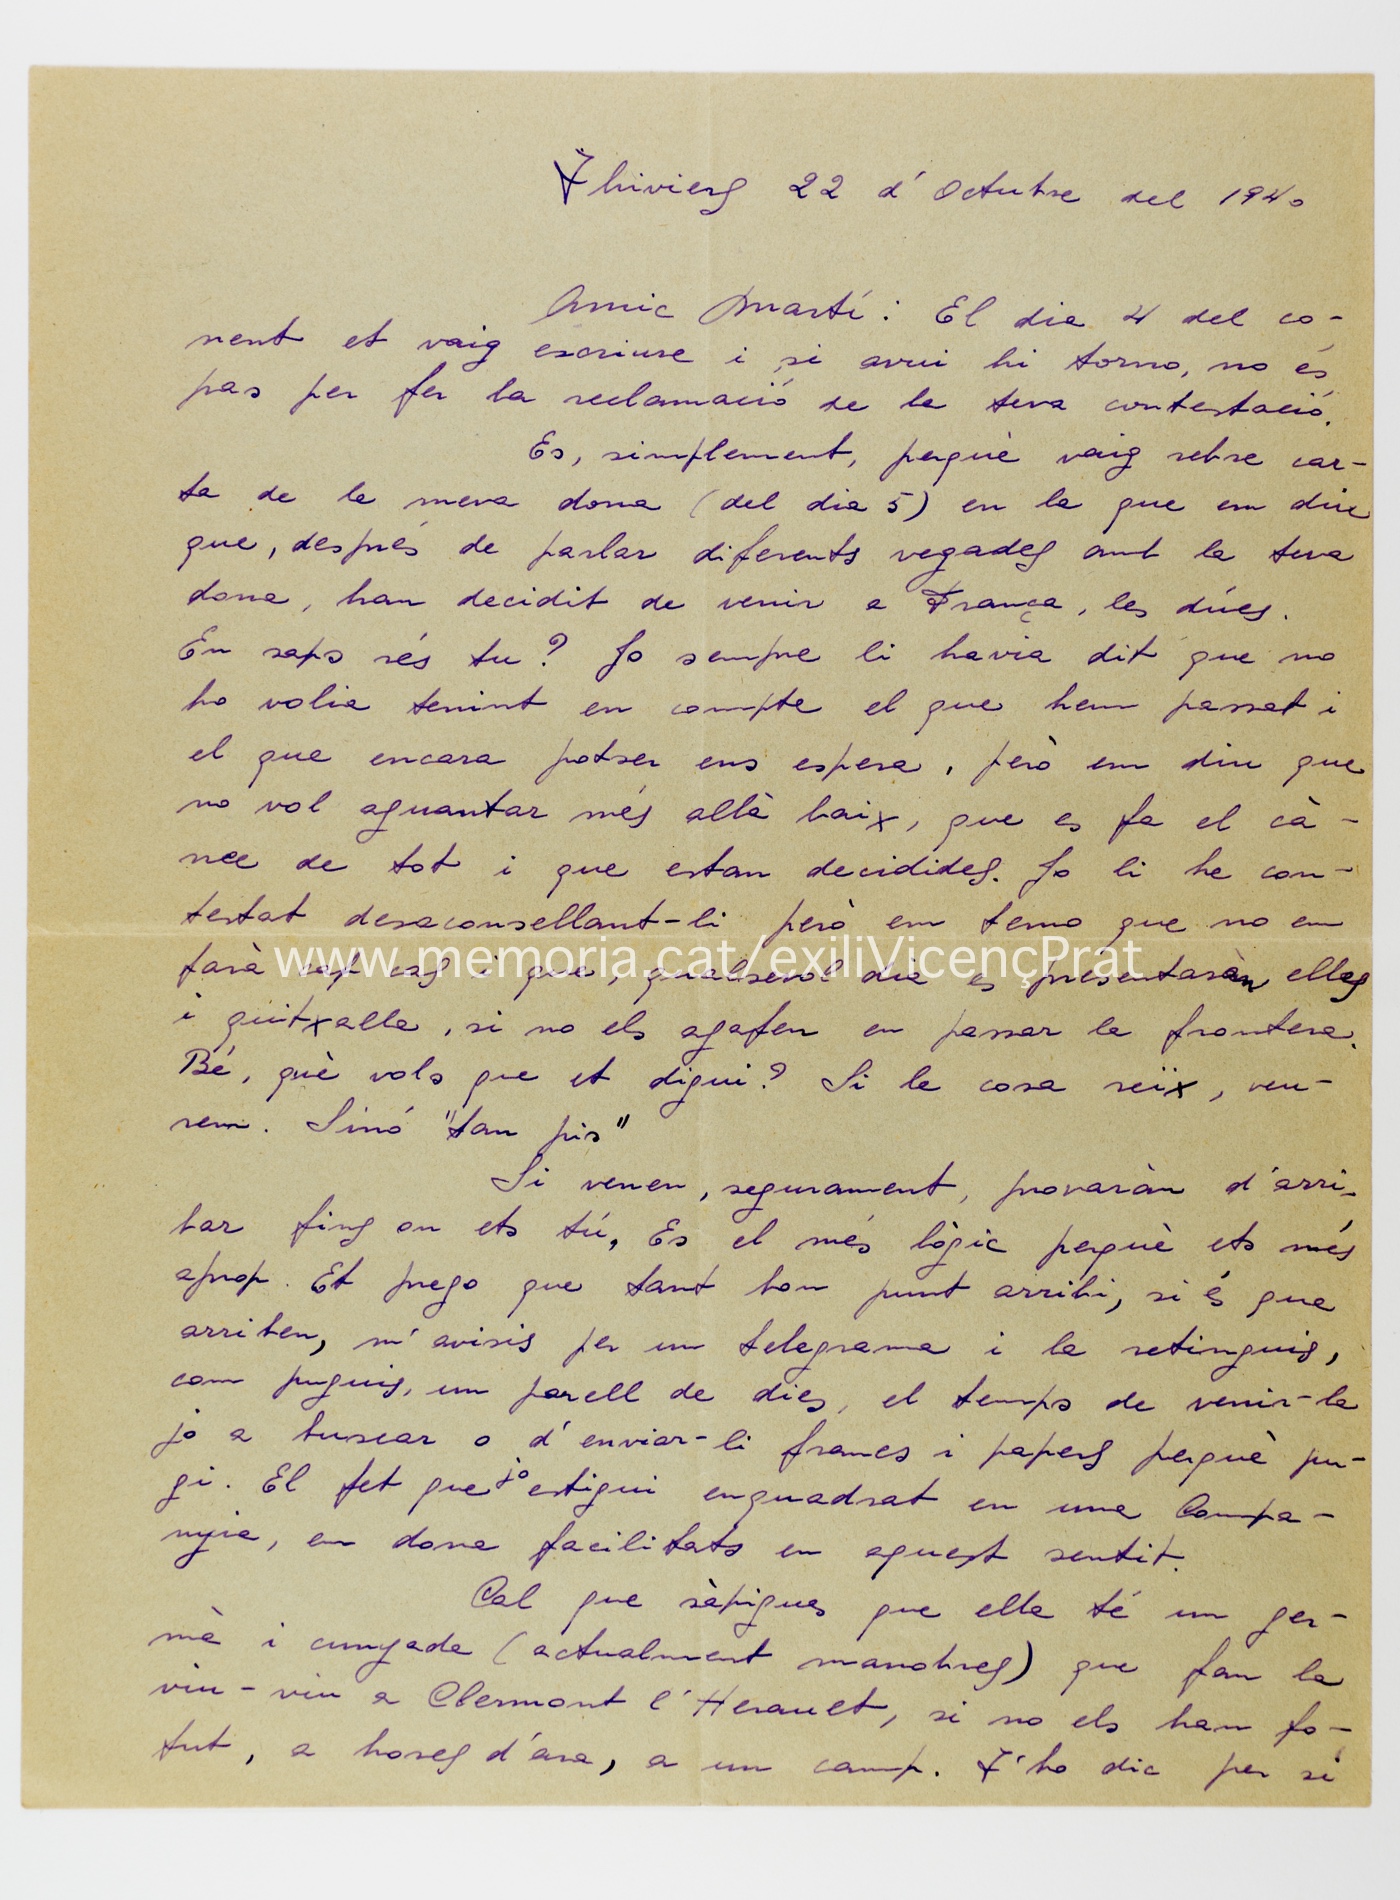 Thiviers 22 d'Octubre del 1940
Amic Martí: El dia 4 del co-
rrent et vaig escriure i si avui hi torno, no és
pas per fer la reclamació de la teva contestació.
Es, simplement, perquè vaig rebre car-
ta de la meva dona (del dia 5) en la que em diu
que, després de parlar diferents vegades amb la teva
dona, han decidit de venir a França, les dúes.
En saps rés tu? Jo sempre li havia dit que no
ho volia tenint en compte el que hem passat i
el que encara potser ens espera, però em diu que
no vol aguantar més allà baix, que es fa el cà-
rrec de tot i que estan decidides. Jo li he con-
testat desaconsellant-li però em temo que no em
farà cap cas i que, qualsevol dia es presentaràn elles
i quitxalla, si no els agafen en passar la frontera.
Bé, què vols que et digui? Si la cosa reïx, veu-
rem. Sinó "tan pis"
Si venen, segurament, provaràn d'arri-
bar fins on ets tú, Es el més lògic perquè ets més
aprop. Et prego que tant bon punt arribi, si és que
arriben, m'avisis per un telegrama i la retinguis,
com puguis, un parell de dies, el temps de venir-la
jo a buscar o d'enviar-li francs i papers perquè pu-
gi. El fet que jo estigui enquadrat en una Compa-
nyia, em dona facilitats en aquest sentit.
Cal que sàpigues que ella té un ger-
mà i cunyada (actualment manobres) que fan la
viu-viu a Clermont l'Herault, si no els han fo-
tut, a hores d'ara, a un camp. T'ho dic per si
www.memoria.cat/exiliVicençPrat